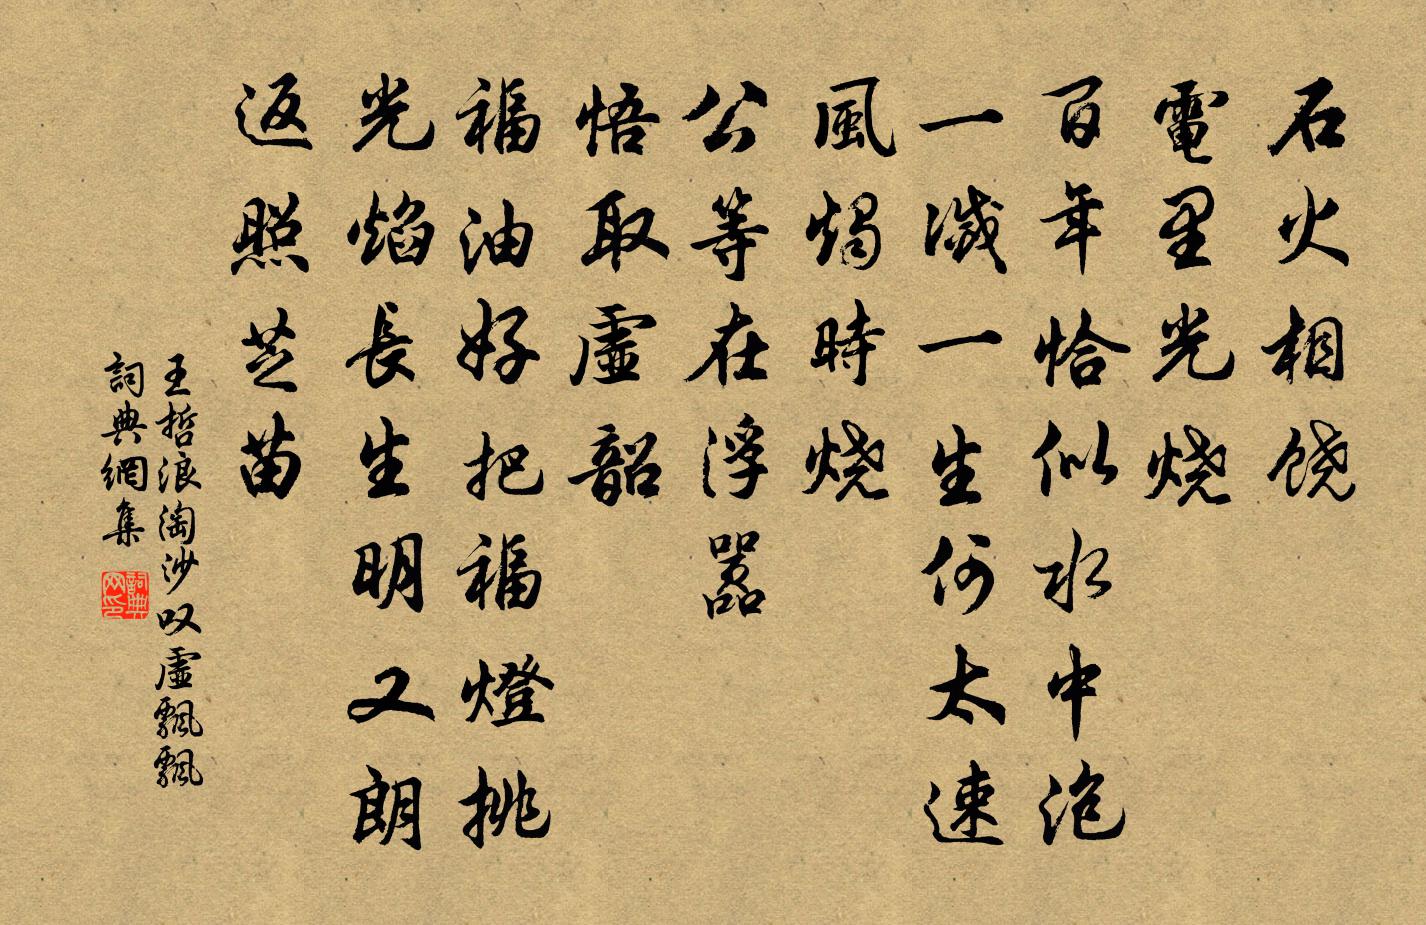 石火相饶
電里光燒
百年恰似水中泡
一滅一生何太速
風燭時燒
公等在浮囂
悟取虛韶
福油好把福燈挑
光焰長生明又朗
返照芝苗
王哲浪淘沙叹虛飄飄
詞典網集
詞典网印